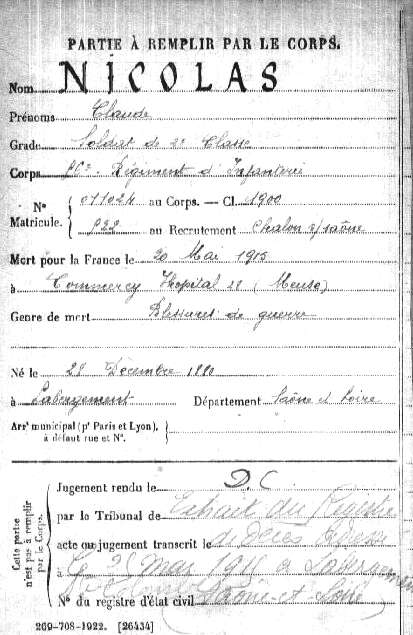 PARTIE À REMPLIR PAR LE CORPS.
Nom NICOLAS
Prénoms Claude
Grade Soldat de 2e Classe
Corps Régiment d'Infanterie
N° 011024 au Corps. — Cl. 1900
Matricule. 922 au Recrutement Chalon s/saône
Mort pour la France le 20 Mai 1915
à Commercy Hopital 28 (Meuse)
Genre de mort Blessures de guerre
Né le 28 Décembre 1880
à Labergement Département Saône et Loire
Arrt municipal (pr Paris et Lyon),
à défaut rue et N°.
Cette partie
n'est pas à remplir
par le Corps.
Jugement rendu le D.C
par le Tribunal de Extrait du Registre
acte ou jugement transcrit le de décès
à
N° du registre d'état civil Saône-et-Loire
269-708-1922. [26434]